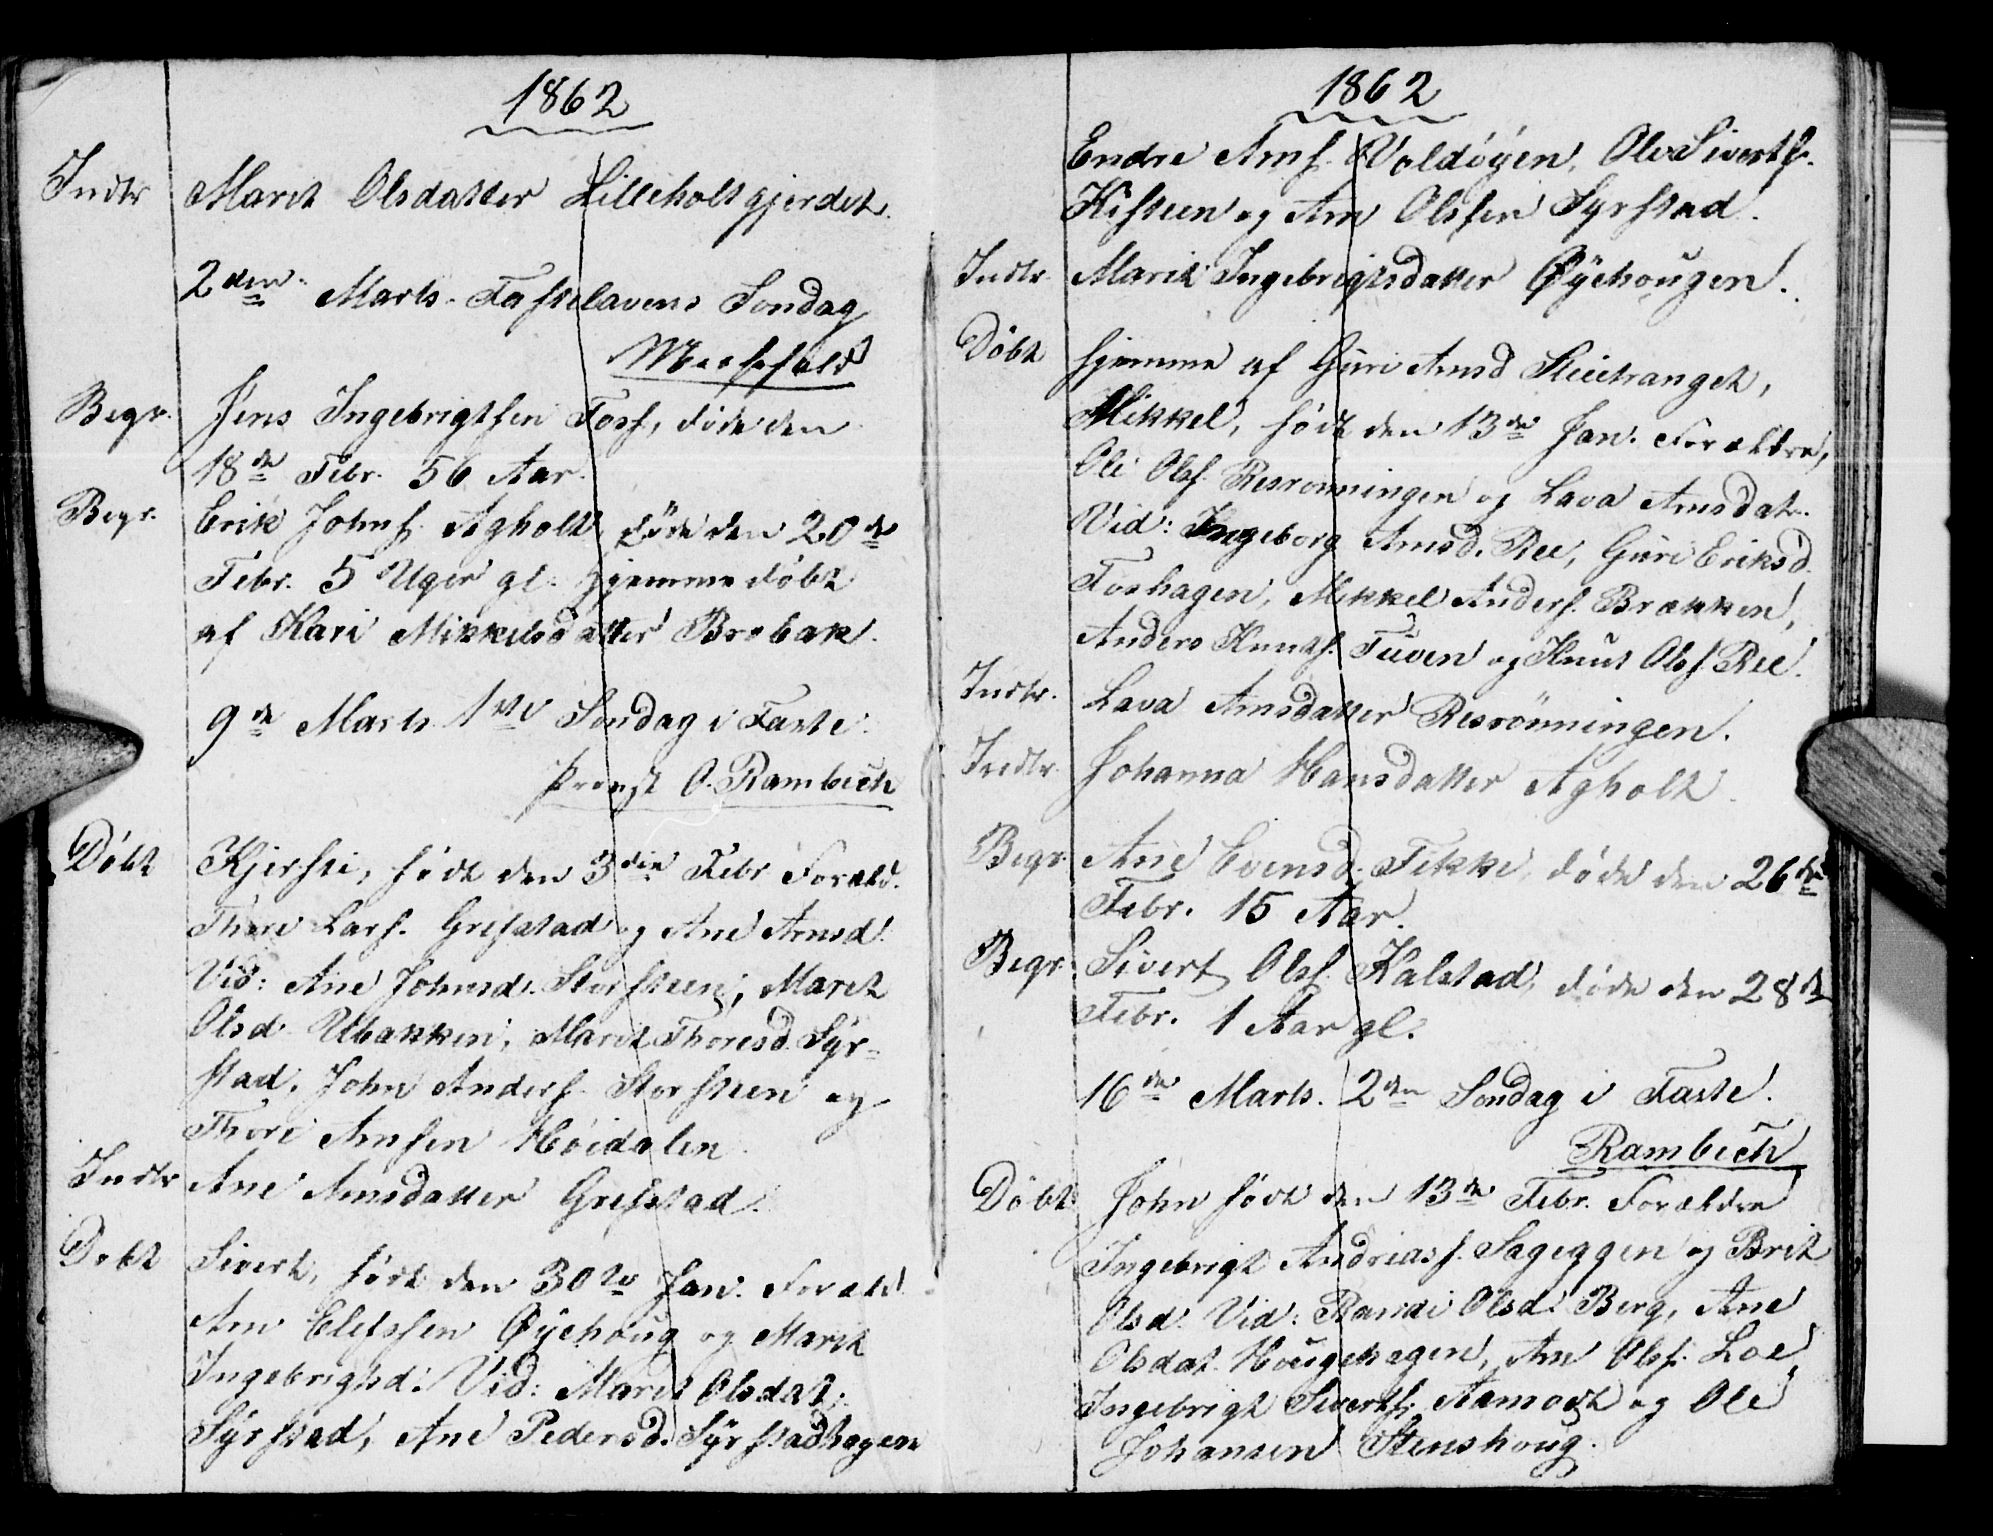 1862
Indtr Marit Olsdatter Lilleholtgjerdet.
2den Marts. Fastelavens Søndag
Messefald
Begr. Jens Ingebrigtsen Foss, døde den
18de Febr. 56 Aar.
Begr. Erik Johnsf. Agholt, døde den 20de
Febr. 5 Uger gl. hjemmedøbt
af Kari Mikkelsdatter Brobak.
9de Marts 1ste Søndag i Faste.
Provst O. Rambech
Døbt Kjersti, født den 3die Febr Foræld.
Thore Larsf. Grefstad og Ane Arnsd.
Vid: Ane Johnsd. Storsteen, Marit
Olsd. Ubakken, Marit Thoresd. Syr-
stad, John Andersf. Storsteen og
Thore Arnsen Høidalen.
Indtr Ane Arnsdatter Grefstad.
Døbt Sivert, født den 30te Jan. Foræld
Arn Elefssen Øyehoug og Marit
Ingebrigtsd. Vid: Marit Olsdat.
Syrstad, Ane Pedersd. Syrstadhagen
1862
Endre Arnsf. Voldøyen, Ole Sivertsf.
Kisteen og Arn Olssen Syrstad.
Indtr. Marit Ingebrigtsdatter Øyehougen.
Døbt hjemme af Guri Arnsd
Mikkel, født den 13de Jan. Forældre,
Ole Olsf. Resrønningen og Lava Arnsdat.
Vid: Ingeborg Arnsd. Ree, Guri Eriksd.
Foshagen, Mikkel Andersf. Brækken,
Anders Knutsf. Tuven og Knut Olsf. Ree.
Indtr. Lava Arnsdatter Resrønningen.
Indtr. Johanna Hansdatter Agholt.
Begr. Ane Evensd. Fikke, døde den 26de
Febr. 15 Aar.
Begr. Sivert Olsf. Kalstad, døde den 28de
Febr. 1 Aar gl.
16de Marts. 2den Søndag i Faste.
Rambech
Døbt John født den 13de Febr. Forældre
Ingebrigt Andreasf. Sageggen og Brit
Olsd. Vid: Randi Olsd. Berg, Ane
Olsdat. Hougehagen, Arn Olsf. Loe,
Ingebrigt Sivertsf. Aamodt og Ole
Johansen Stenshoug.